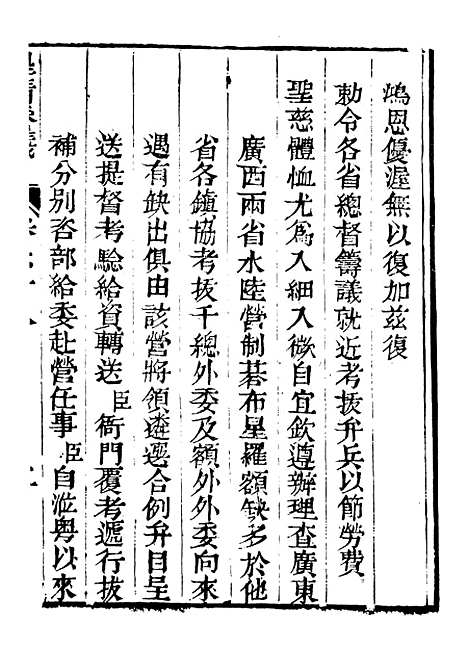 鴻恩優渥無以復加茲復
勅令各省總督籌議就近考拔弁兵以節勞費
聖慈體恤尤為入細入微自宜欽遵辦理查廣東
廣西兩省水陸營制碁布星羅額缺多於他
省各鎮協考拔千總外委及額外外委向來
遇有缺出俱由該營將領遴選合例弁目呈
送提督考驗給資轉送臣衙門覆考遞行拔
補分別咨部給委赴營任事臣自涖粵以來